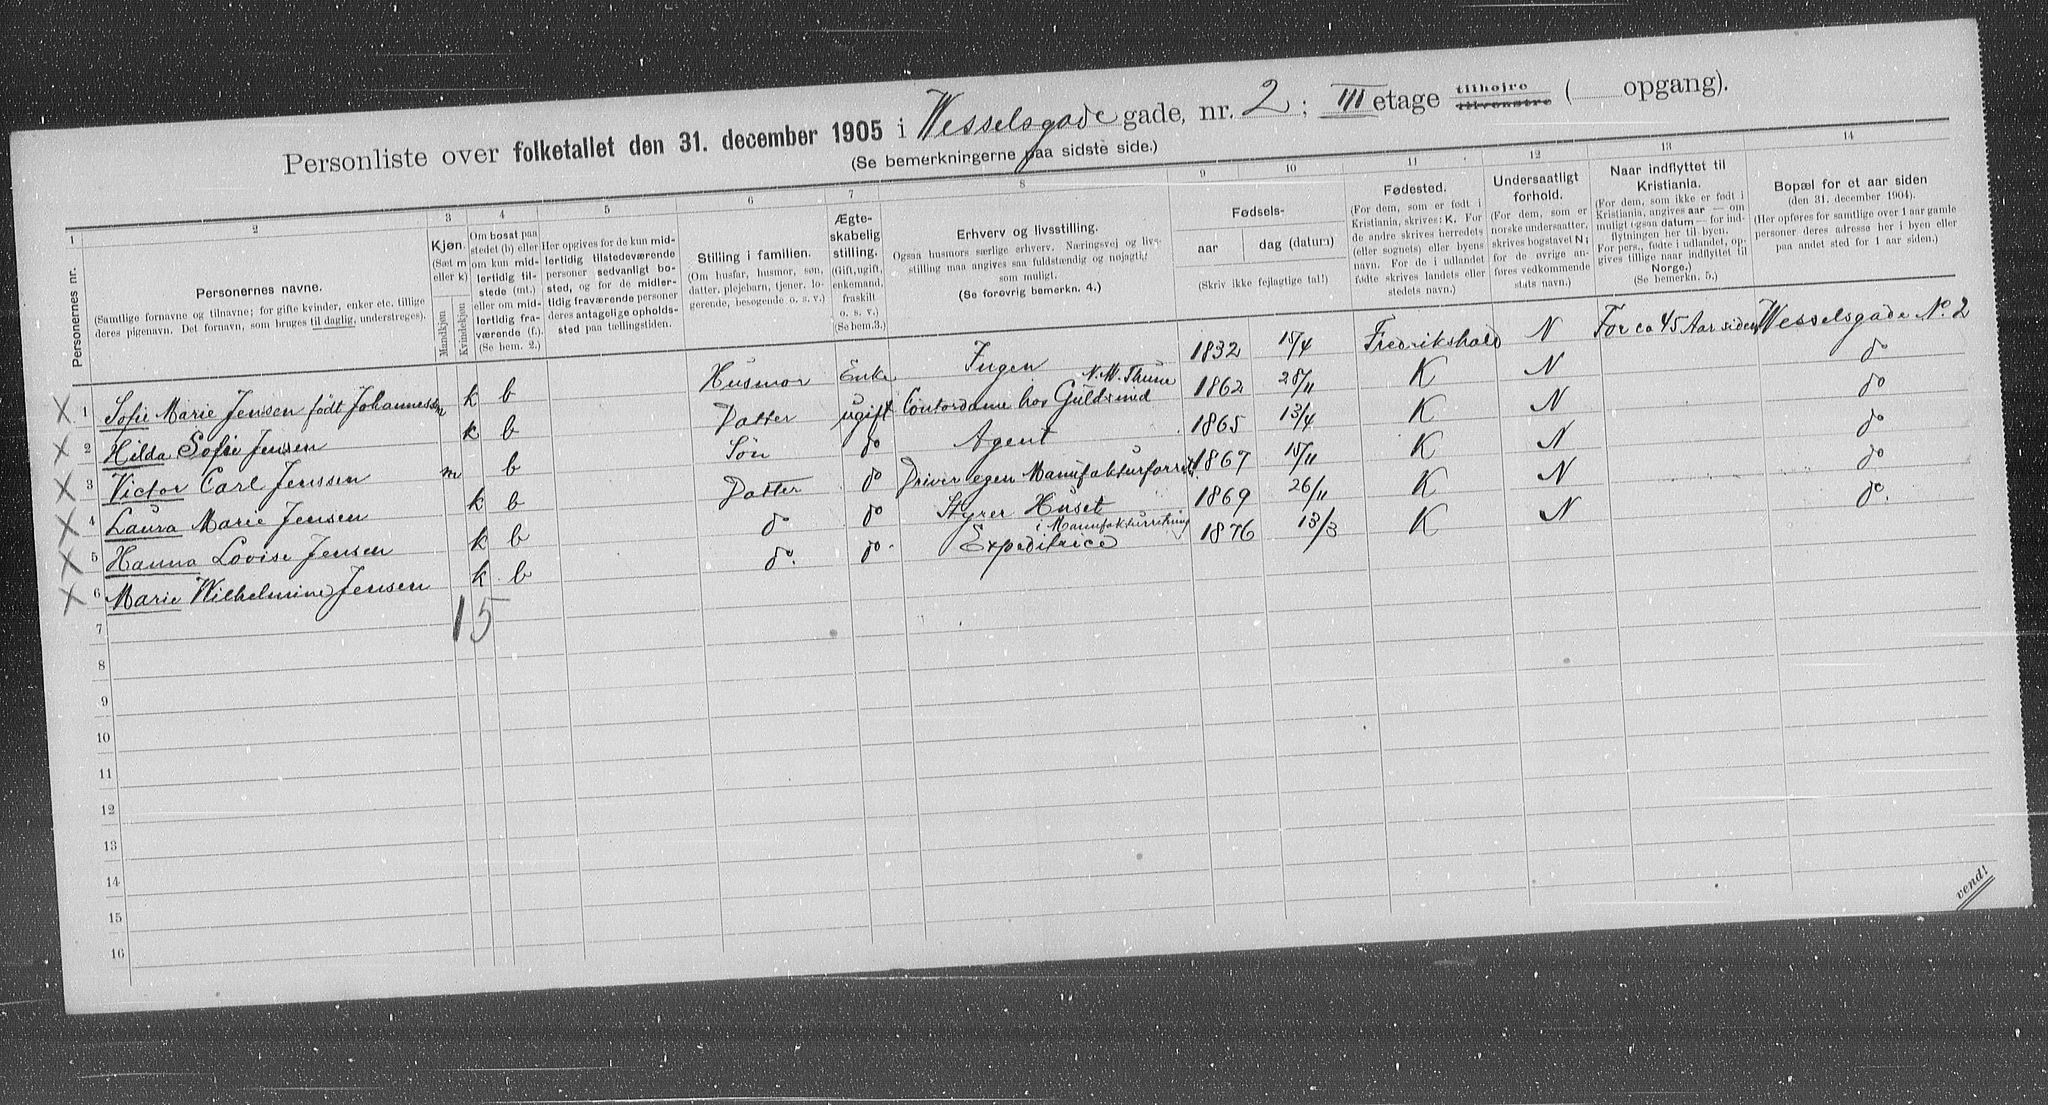 Personliste over folketallet den 31. december 1905 i Wesselsgade gade, nr. 2; III etage tilhøjre tilvenstre ( opgang).
(Se bemerkningerne paa sidste side.)
1 2 3 4 5 6 7 8 9 10 11 12 13 14
Personernes nr.
Personernes navne.
(Samtlige fornavne og tilnavne; for gifte kvinder, enker etc. tillige
deres pigenavn. Det fornavn, som bruges til daglig, understreges).
Kjøn.
(Sæt m
eller k)
Mandkjøn
Kvindekjøn
Om bosat paa
stedet (b) eller
om kun mid-
lertidig til-
stede (mt.)
eller om mid-
lertidig fra-
værende (f.)
(Se bem. 2.)
Her opgives for de kun mid-
lertidig tilstedeværende
personer sedvanligt bo-
sted, og for de midler-
tidig fraværende personer
deres antagelige opholds-
sted paa tællingstiden.
Stilling i familien.
(Om husfar, husmor, søn,
datter, plejebarn, tjener, lo-
gerende, besøgende o. s. v.)
Ægte-
skabelig
stilling.
(Gift, ugift,
enkemand,
fraskilt
o. s. v.)
(Se bem. 3.)
Erhverv og livsstilling.
Ogsaa husmors særlige erhverv. Næringsvej og livs-
stilling maa angives saa fuldstændig og nøjagtig
som muligt.
(Se forøvrig bemerkn. 4.)
Fødsels-
aar dag (datum)
(Skriv ikke fejlagtige tal!)
Fødested.
(For dem, som er født i
Kristiania, skrives: K. For
de andre skrives herredets
(eller sognets) eller byens
navn. For de i udlandet
fødte skrives landets eller
stedets navn.)
Undersaatligt
forhold.
(For dem, som er
norske undersaatter,
skrives bogstavet N;
for de øvrige an-
føres vedkommende
stats navn.)
Naar indflyttet til
Kristiania.
(For dem, som ikke er født i
Kristiania, angives aar — om
muligt ogsaa datum — for ind-
flytningen her til byen.
For pers., fødte i udlandet, op-
gives tillige naar indflyttet til
Norge.)
(Se bemerkn. 5.)
Bopæl for et aar siden
(den 31. december 1904).
(Her opføres for samtlige over 1 aar gamle
personer deres adresse her i byen eller
paa andet sted for 1 aar siden.)
X 1 Sofie Marie Jensen født Johannessen k b Husmor Enke Ingen 1832 15/4 Fredrikshald N For ca 45 Aar siden Wesselsgade No. 2
X 2 Hilda Sofie Jensen k b Datter ugift Contordame hos Guldsmed N. M. Thune 1862 28/11 K N do
X 3 Victor Carl Jenssen m b Søn do Agent 1865 13/4 K N do
X 4 Laura Marie Jensen k b Datter do Driver egen Manufakturforretn. 1867 15/11 K N do
X 5 Hanna Lovise Jensen k b do do Styrer Huset 1869 26/11 K N do
X 6 Marie Wilhelmine Jensen k b do. do. Expeditrice i Manufakturretning 1876 13/3 K N do.
7 1 5
8
9
10
11
12
13
14
15
16
vend!